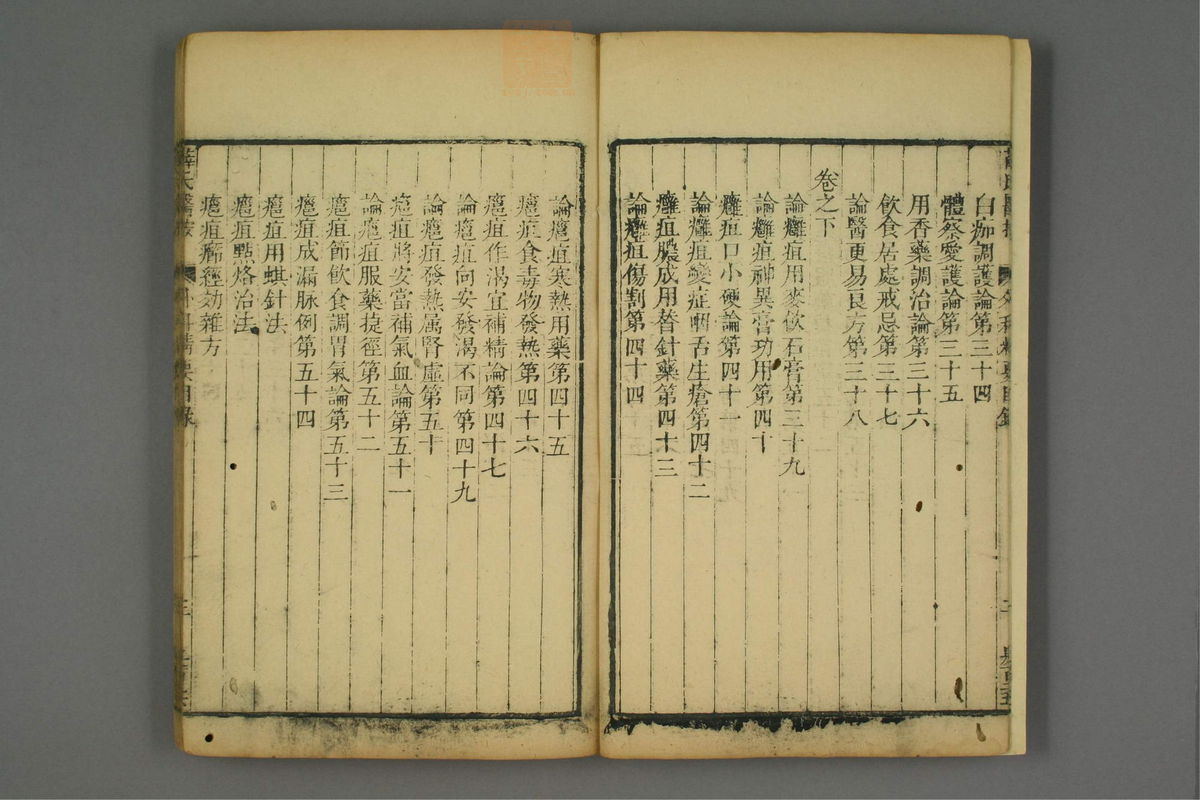 白疕調護論第三十四
體察愛護論第三十五
用香藥調治論第三十六
飲食居處戒忌第三十七
論醫更易良方第三十八
卷之下
論癰疽用麥飲石膏第三十九
論癰疽神異膏功用第四十
癰疽口小硬論第四十一
論癰疽變症咽舌生瘡第四十二
癰疽膿成用替針藥第四十三
論癰疽傷割第四十四
論癰疽寒熱用藥第四十五
癰疽食毒物發熱第四十六
癰疽作渴宜補精論第四十七
論癰疽向安發渴不同第四十九
論癰疽發熱属腎虛第五十
癰疽將安當補氣血論第五十一
論癰疽服藥捷徑第五十二
癰疽節飲食調胃氣論第五十三
癰疽成漏脉例第五十四
癰疽用蜞針法
癰疽㸃烙治法
癰疽癤經効雜方
薛氏醫按
外科精要目錄
三